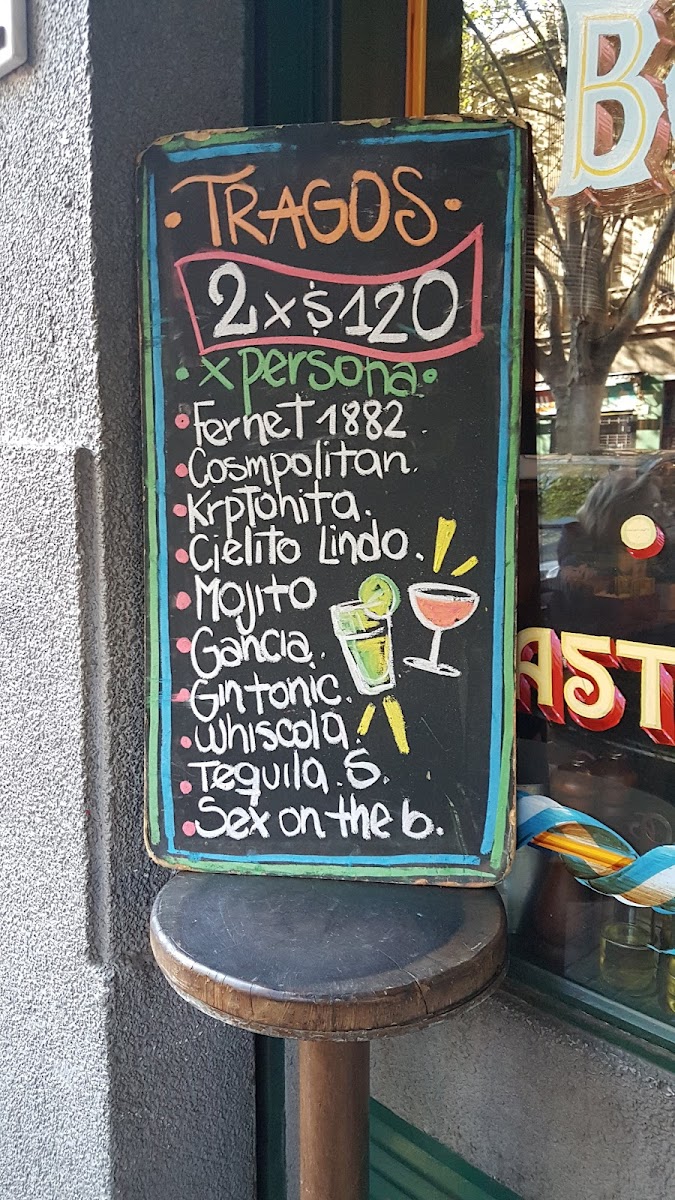 B
• TRAGOS •
2 x $120
• x persona •
• Fernet 1882
• Cosmpolitan.
• KrpTohita.
• Cielito Lindo.
• Mojito
• Gancia.
• Gin tonic.
• Whiscola.
• Tequila. S.
• Sex on the b.
AST